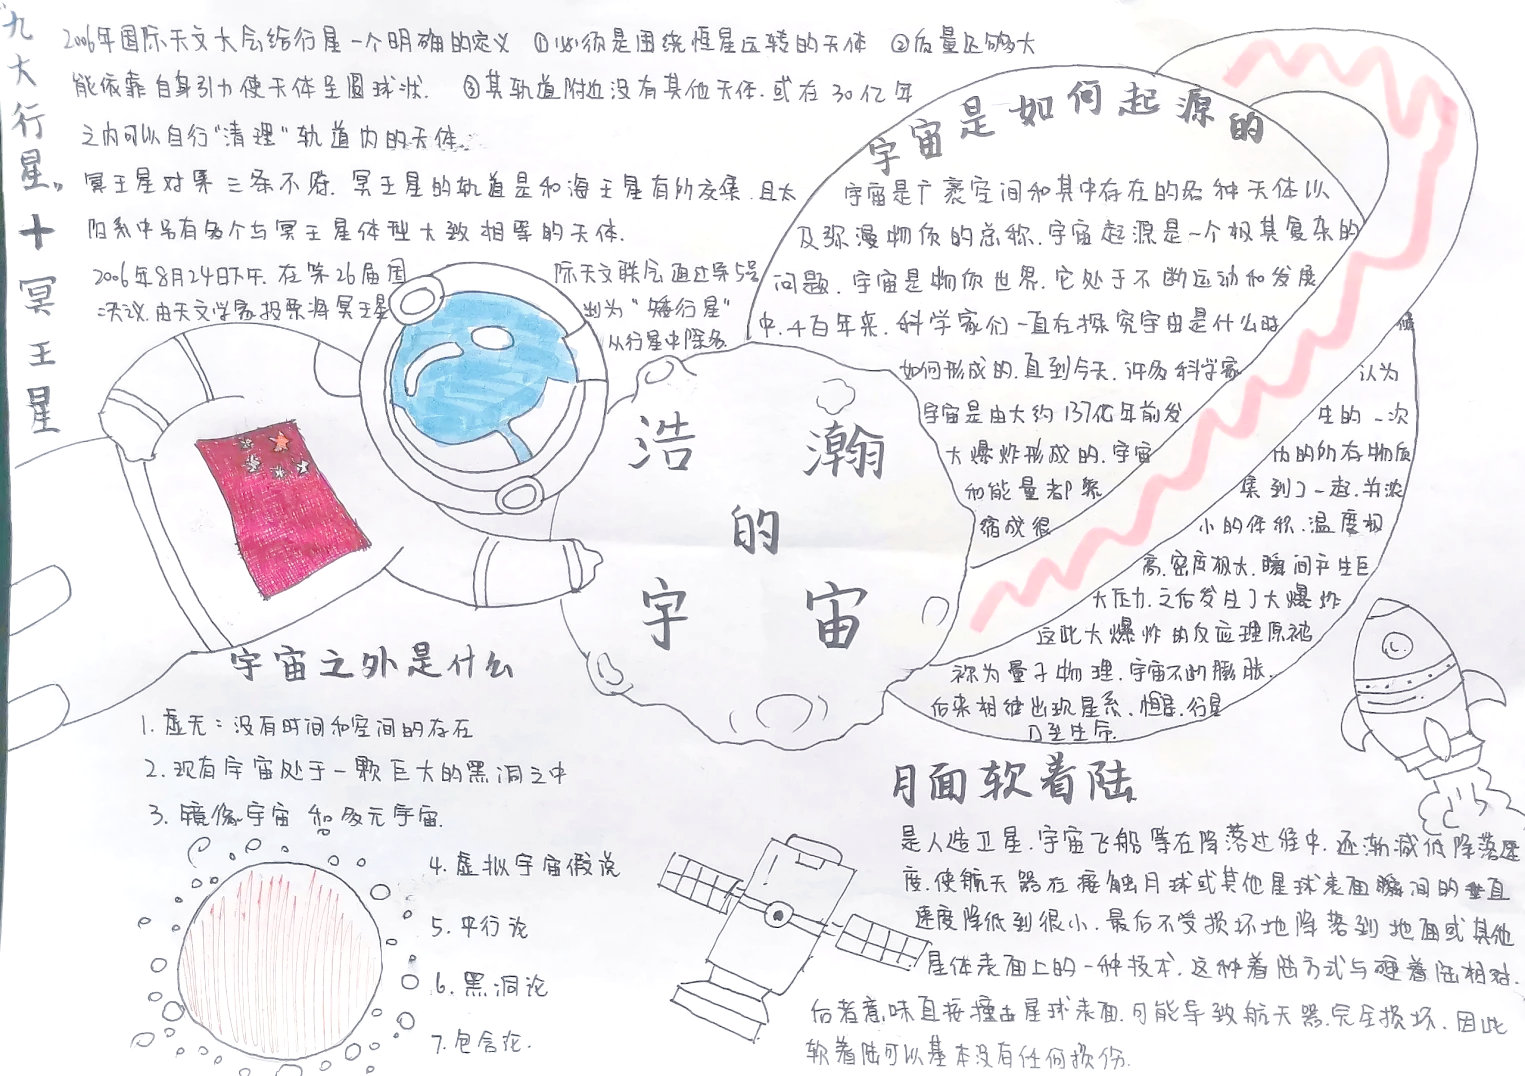 九大行星"十冥王星
2006年国际天文大会给行星一个明确的定义 ①必须是围绕恒星运转的天体 ②质量足够大
能依靠自身引力使天体呈圆球状. ③其轨道附近没有其他天体.或在30亿年
之内可以自行"清理"轨道内的天体.
冥王星对第三条不符.冥王星的轨道是和海王星有所交集,且太
阳系中另有多个与冥王星体型大致相等的天体.
2006年8月24日下午.在第26届国际天文联会通过第5号
决议.由天文学家投票将冥王星划为"矮行星"
从行星中除名.
宇宙是如何起源的
宇宙是广袤空间和其中存在的各种天体以
及弥漫物质的总称.宇宙起源是一个极其复杂的
问题.宇宙是物质世界.它处于不断运动和发展
中.千百年来.科学家们一直在探究宇宙是什么时候
如何形成的.直到今天.许多科学家认为
宇宙是由大约137亿年前发生的一次
大爆炸形成的.宇宙内的所存物质
和能量都聚集到了一起.并浓
缩成很小的体积.温度极
高.密度极大.瞬间产生巨
大压力.之后发生了大爆炸
这此大爆炸的反应理原被
称为量子物理.宇宙不的膨胀.
后来相继出现星系.恒星.行星
乃至生命.
浩瀚
的
宇宙
宇宙之外是什么
1.虚无:没有时间和空间的存在
2.现有宇宙处于一颗巨大的黑洞之中
3.镜像宇宙和多元宇宙.
4.虚拟宇宙假说
5.平行论
6.黑洞论
7.包含论.
月面软着陆
是人造卫星.宇宙飞船等在降落过程中.逐渐减低降落速
度.使航天器在接触月球或其他星球表面瞬间的垂直
速度降低到很小.最后不受损坏地降落到地面或其他
星体表面上的一种技术.这种着陆方式与硬着陆相对.
后者意味直接撞击星球表面.可能导致航天器完全损坏.因此
软着陆可以基本没有任何损伤.